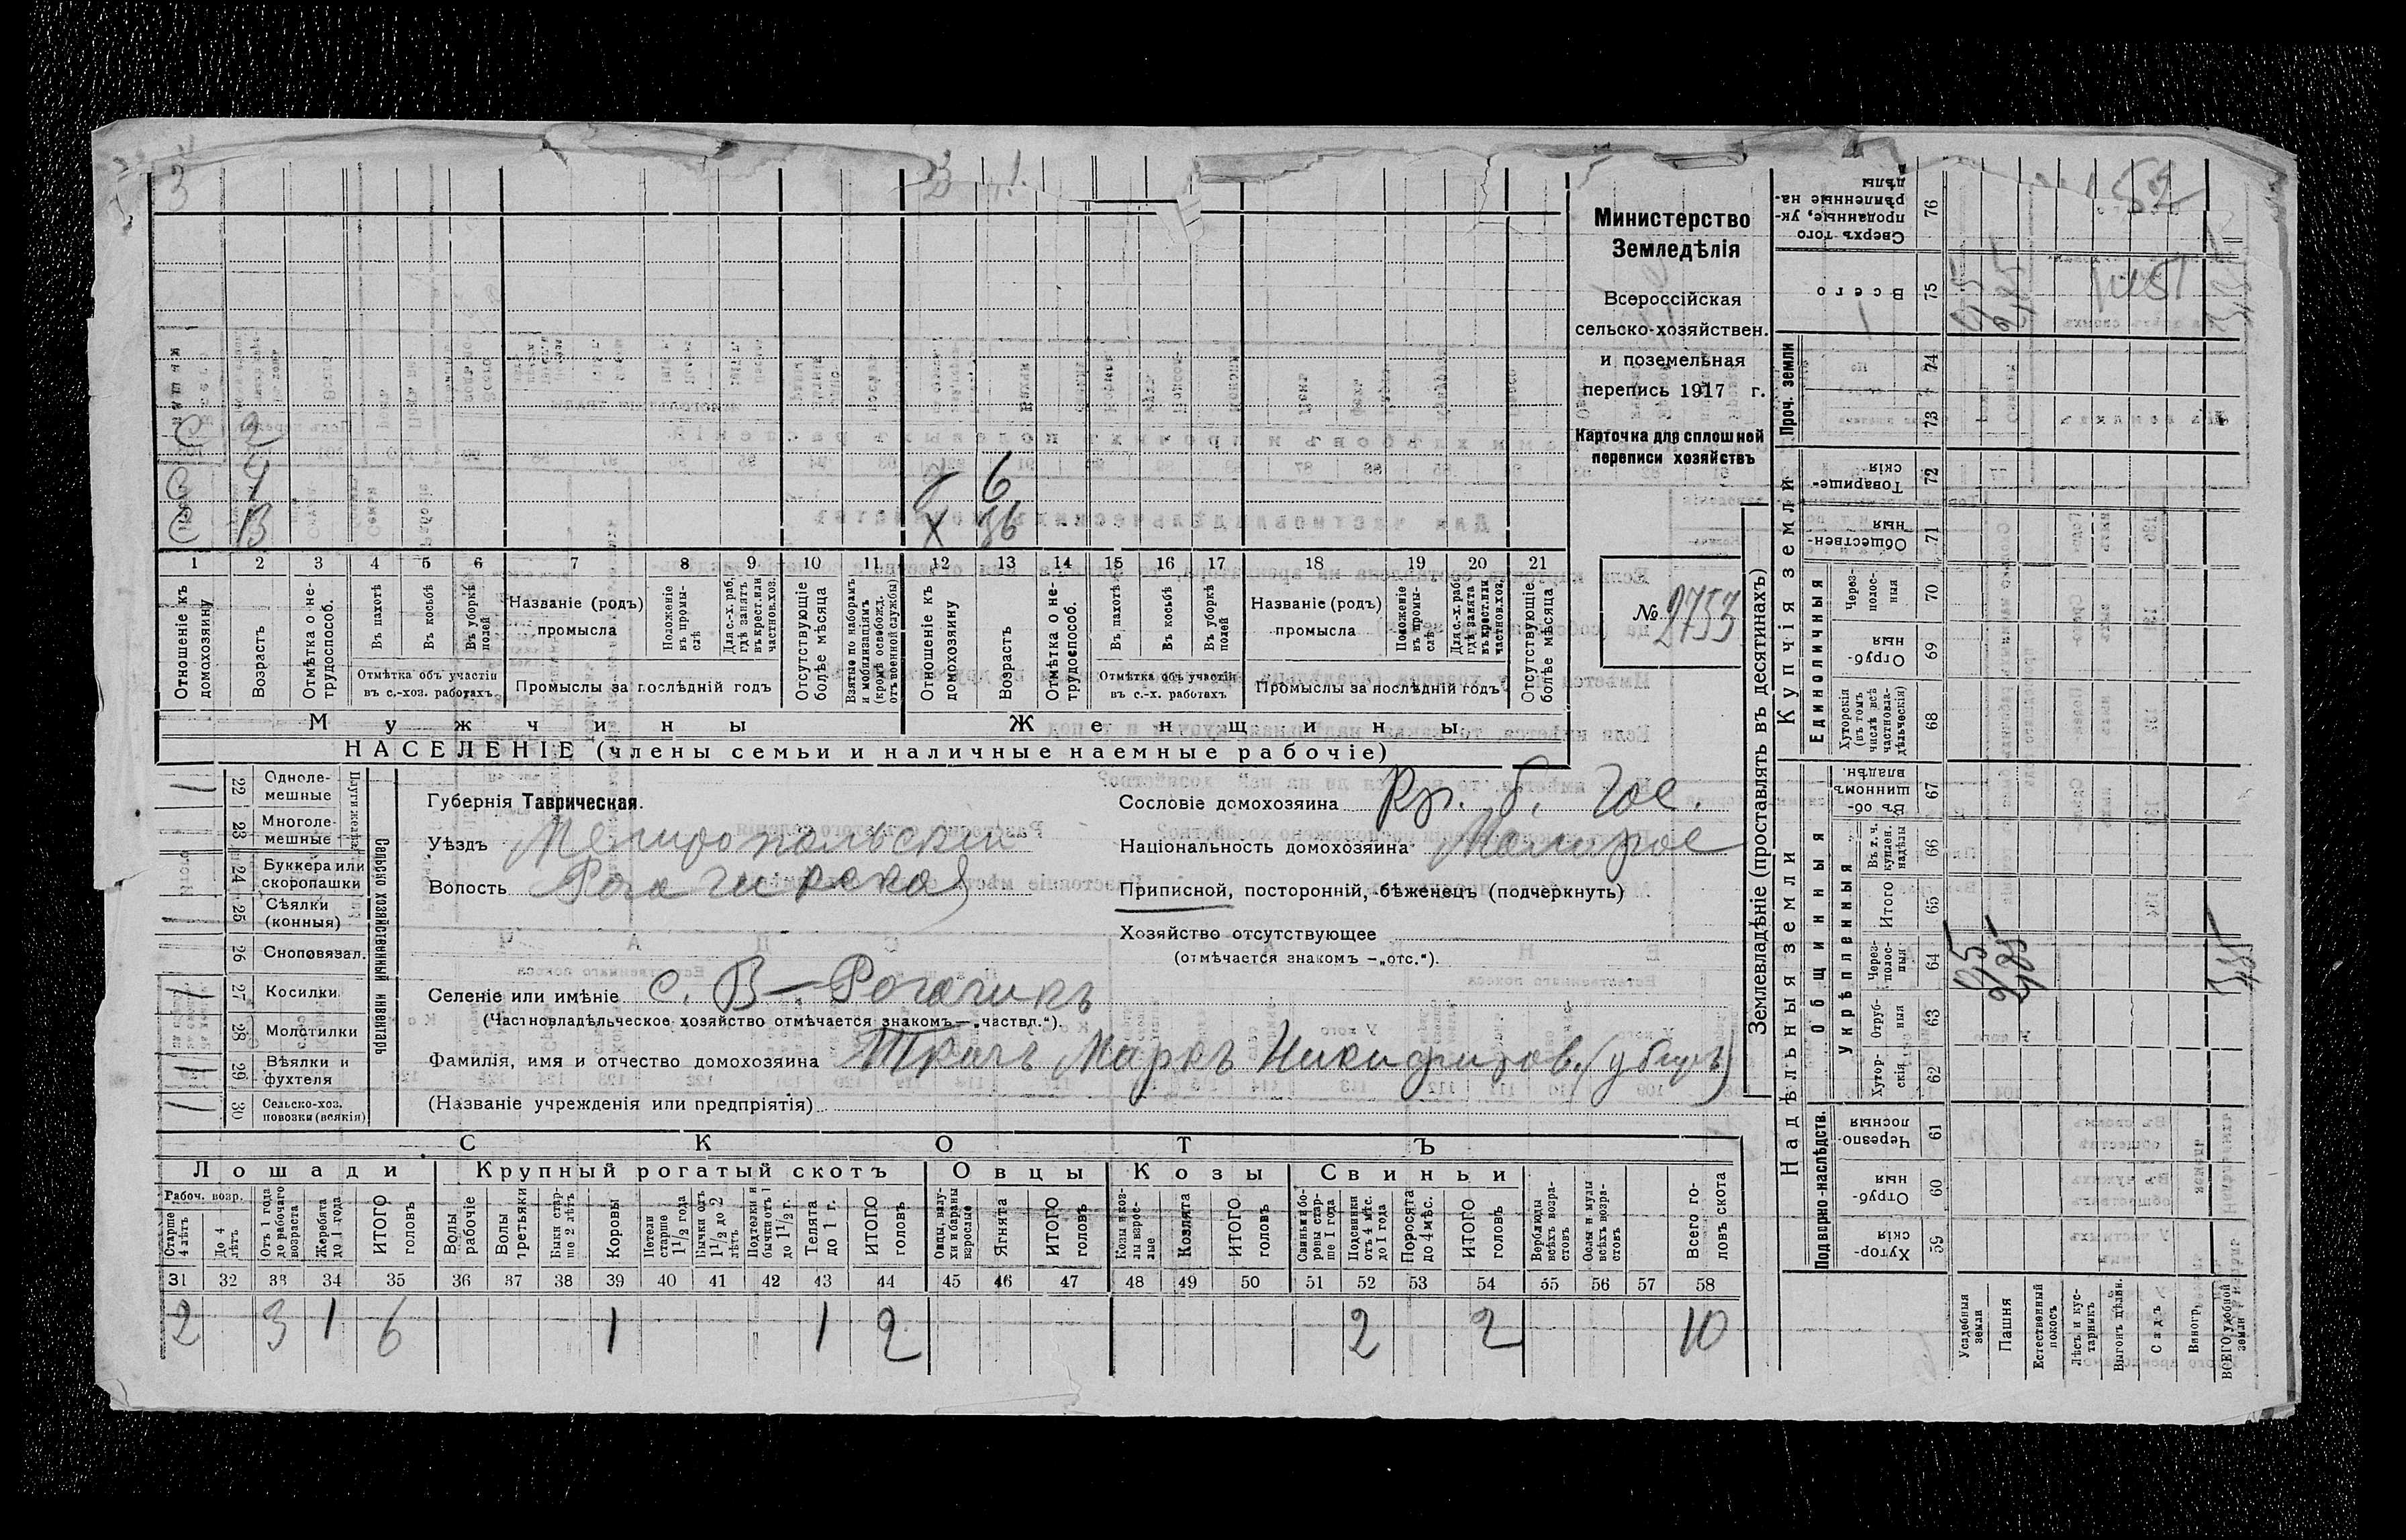 52
Министерство
Земледѣлія
Всероссійская
сельско-хозяйствен.
и поземельная
перепись 1917 г.
Карточка для сплошной
переписи хозяйствъ
№ 2753
С 2
С 4 С 6
С 13 Х 36
1 2 3 4 5 6 7 8 9 10 11 12 13 14 15 16 17 18 19 20 21
Отношеніе къ домохозяину
Возрастъ
Отмѣтка о не-трудоспособ.
Въ пахотѣ
Въ косьбѣ
Въ уборкѣ полей
Отмѣтка объ участіи
въ с.-хоз. работахъ
Названіе (родъ)
промысла
Положеніе въ промы-слѣ
Для с.-х. раб. гдѣ занятъ въ крест. или частнов. хоз.
Промыслы за послѣдній годъ
Отсутствующіе болѣе мѣсяца
Взятые по наборамъ и мобилизаціямъ (кромѣ освобожд. отъ военной службы)
Отношеніе къ домохозяину
Возрастъ
Отмѣтка о не-трудоспособ.
Въ пахотѣ
Въ косьбѣ
Въ уборкѣ полей
Отмѣтка объ участіи
въ с.-х. работахъ
Названіе (родъ)
промысла
Положеніе въ промы-слѣ
Для с.-х. раб. гдѣ занята въ крест. или частнов. хоз.
Промыслы за послѣдній годъ
Отсутствующіе болѣе мѣсяца
Мужчины Женщины
НАСЕЛЕНІЕ (члены семьи и наличные наемные рабочіе)
Сельско-хозяйственный инвентарь
22 Одноле-мешные 1
23 Многоле-мешные
24 Буккера или скоропашки
25 Сѣялки (конныя) 1
26 Сноповязал.
27 Косилки 1
28 Молотилки
29 Вѣялки и фухтеля 1
30 Сельско-хоз. повозки (всякія) 1
Губернія Таврическая.
Уѣздъ Мелитопольскій
Волость Рогачикская
Сословіе домохозяина Кр. б. гос.
Національность домохозяина Малорос
Приписной, посторонній, бѣженецъ (подчеркнуть)
Хозяйство отсутствующее
(отмѣчается знакомъ —„отс.“).
Селеніе или имѣніе с. В-Рогачикъ
(Частновладѣльческое хозяйство отмѣчается знакомъ—„частвл.“).
Фамилія, имя и отчество домохозяина Ткачъ Маркъ Никифоров. (убитъ)
(Названіе учрежденія или предпріятія)
СКОТЪ
Лошади Крупный рогатый скотъ Овцы Козы Свиньи
Рабоч. возр.
Старше 4 лѣтъ
До 4 лѣтъ
Отъ 1 года до рабочаго возраста
Жеребята до 1 года
ИТОГО головъ
Волы рабочіе
Волы третьяки
Быки стар-ше 2 лѣтъ
Коровы
Нетели старше 1 1/2 года
Бычки отъ 1 1/2 до 2 лѣтъ
Подтелки и бычки отъ 1 до 1 1/2 г.
Телята до 1 г.
ИТОГО головъ
Овцы, валу-хи и бараны взрослые
Ягнята
ИТОГО головъ
Козы и коз-лы взрос-лые
Козлята
ИТОГО головъ
Свиньи и бо-ровы стар-ше 1 года
Подсвинки отъ 4 мѣс. до 1 года
Поросята до 4 мѣс.
ИТОГО головъ
Верблюды всѣхъ возра-стовъ
Ослы и мулы всѣхъ возра-стовъ
Всего го-ловъ скота
31 32 33 34 35 36 37 38 39 40 41 42 43 44 45 46 47 48 49 50 51 52 53 54 55 56 57 58
2 3 1 6 1 1 2 2 2 10
Землевладѣніе (проставлять въ десятинахъ)
Надѣльныя земли Купчія земли Проч. земли
Подворно-наслѣдств. Общинныя Единоличныя
Укрѣпленныя
Хутор-скія 59
Отруб-ныя 60
Черезпо-лосныя 61
Хутор-скія 62
Отруб-ныя 63
Через-полос-ныя 64
Итого 65
Въ т. ч. куплен. надѣлы 66
Въ об-щинномъ владѣн. 67
Хуторскія (въ томъ числѣ всѣ частновла-дѣльческія) 68
Отруб-ныя 69
Через-полос-ныя 70
Обществен-ныя 71
Товарище-скія 72
73
74
Всего 75
Сверхъ того проданные, ук-рѣпленные на-дѣлы 76
Усадебныя земли
Пашня
Естественный покосъ
Лѣсъ и кус-тарникъ
Выгонъ цѣлин.
Садъ
Виногр.
ВСЕГО удобной земли